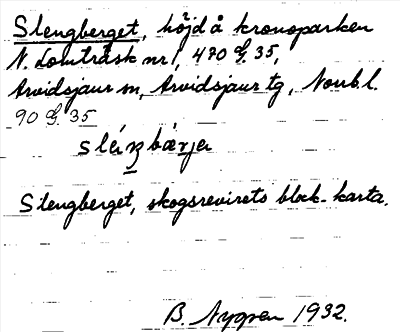 Slengberget, höjd å kronoparken
N. Lomträsk nr 1, 470 G. 35,
Arvidsjaur sn, Arvidsjaur tg, Norrb. l.
90 G. 35
Slengberget, skogsrevirets block-karta.
B. Nygren 1932.